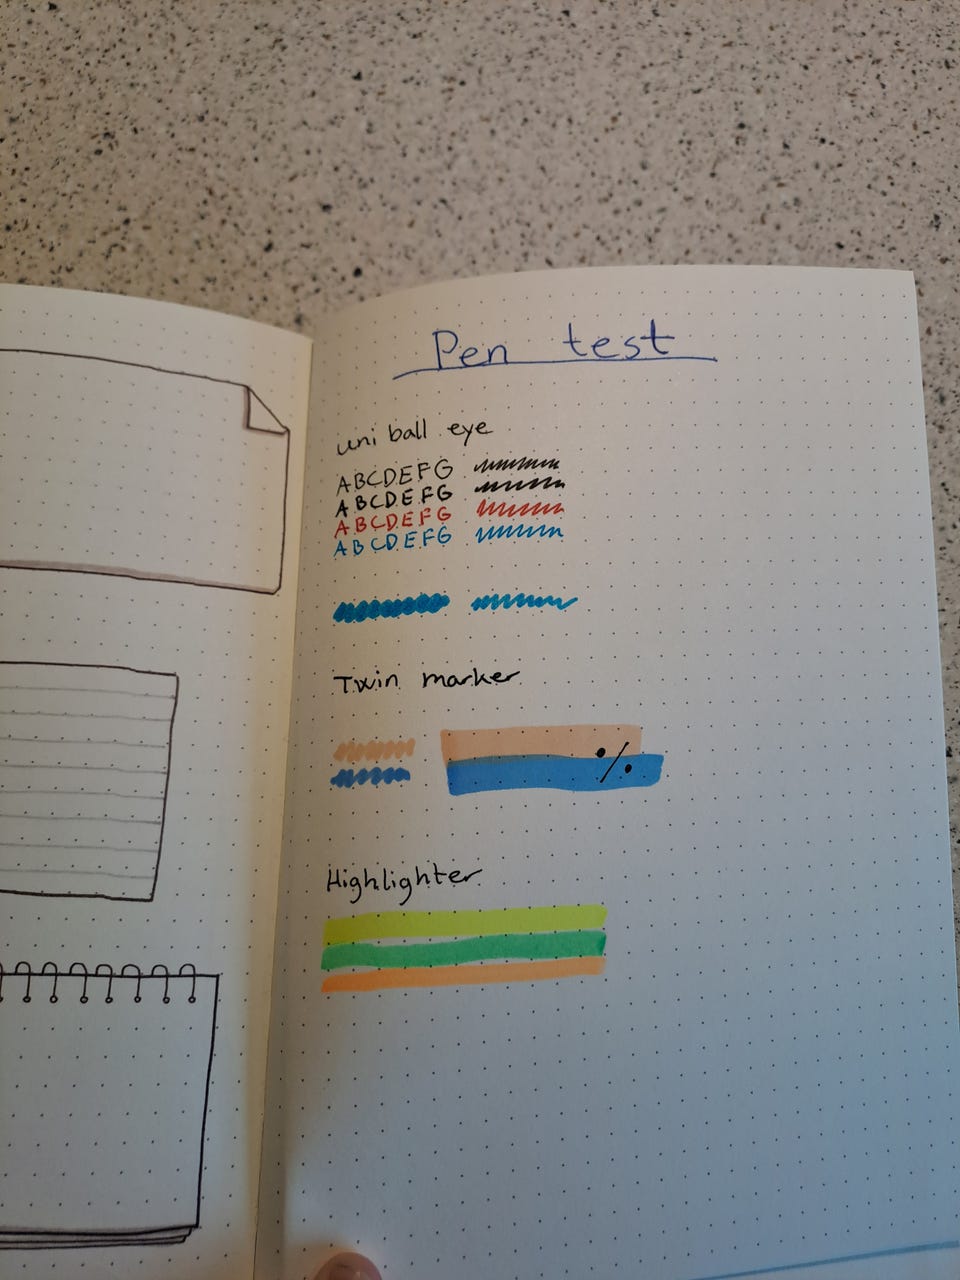 Pen test
uni ball eye
ABCDEFG
ABCDEFG
ABCDEFG
ABCDEFG
Twin marker
%
Highlighter